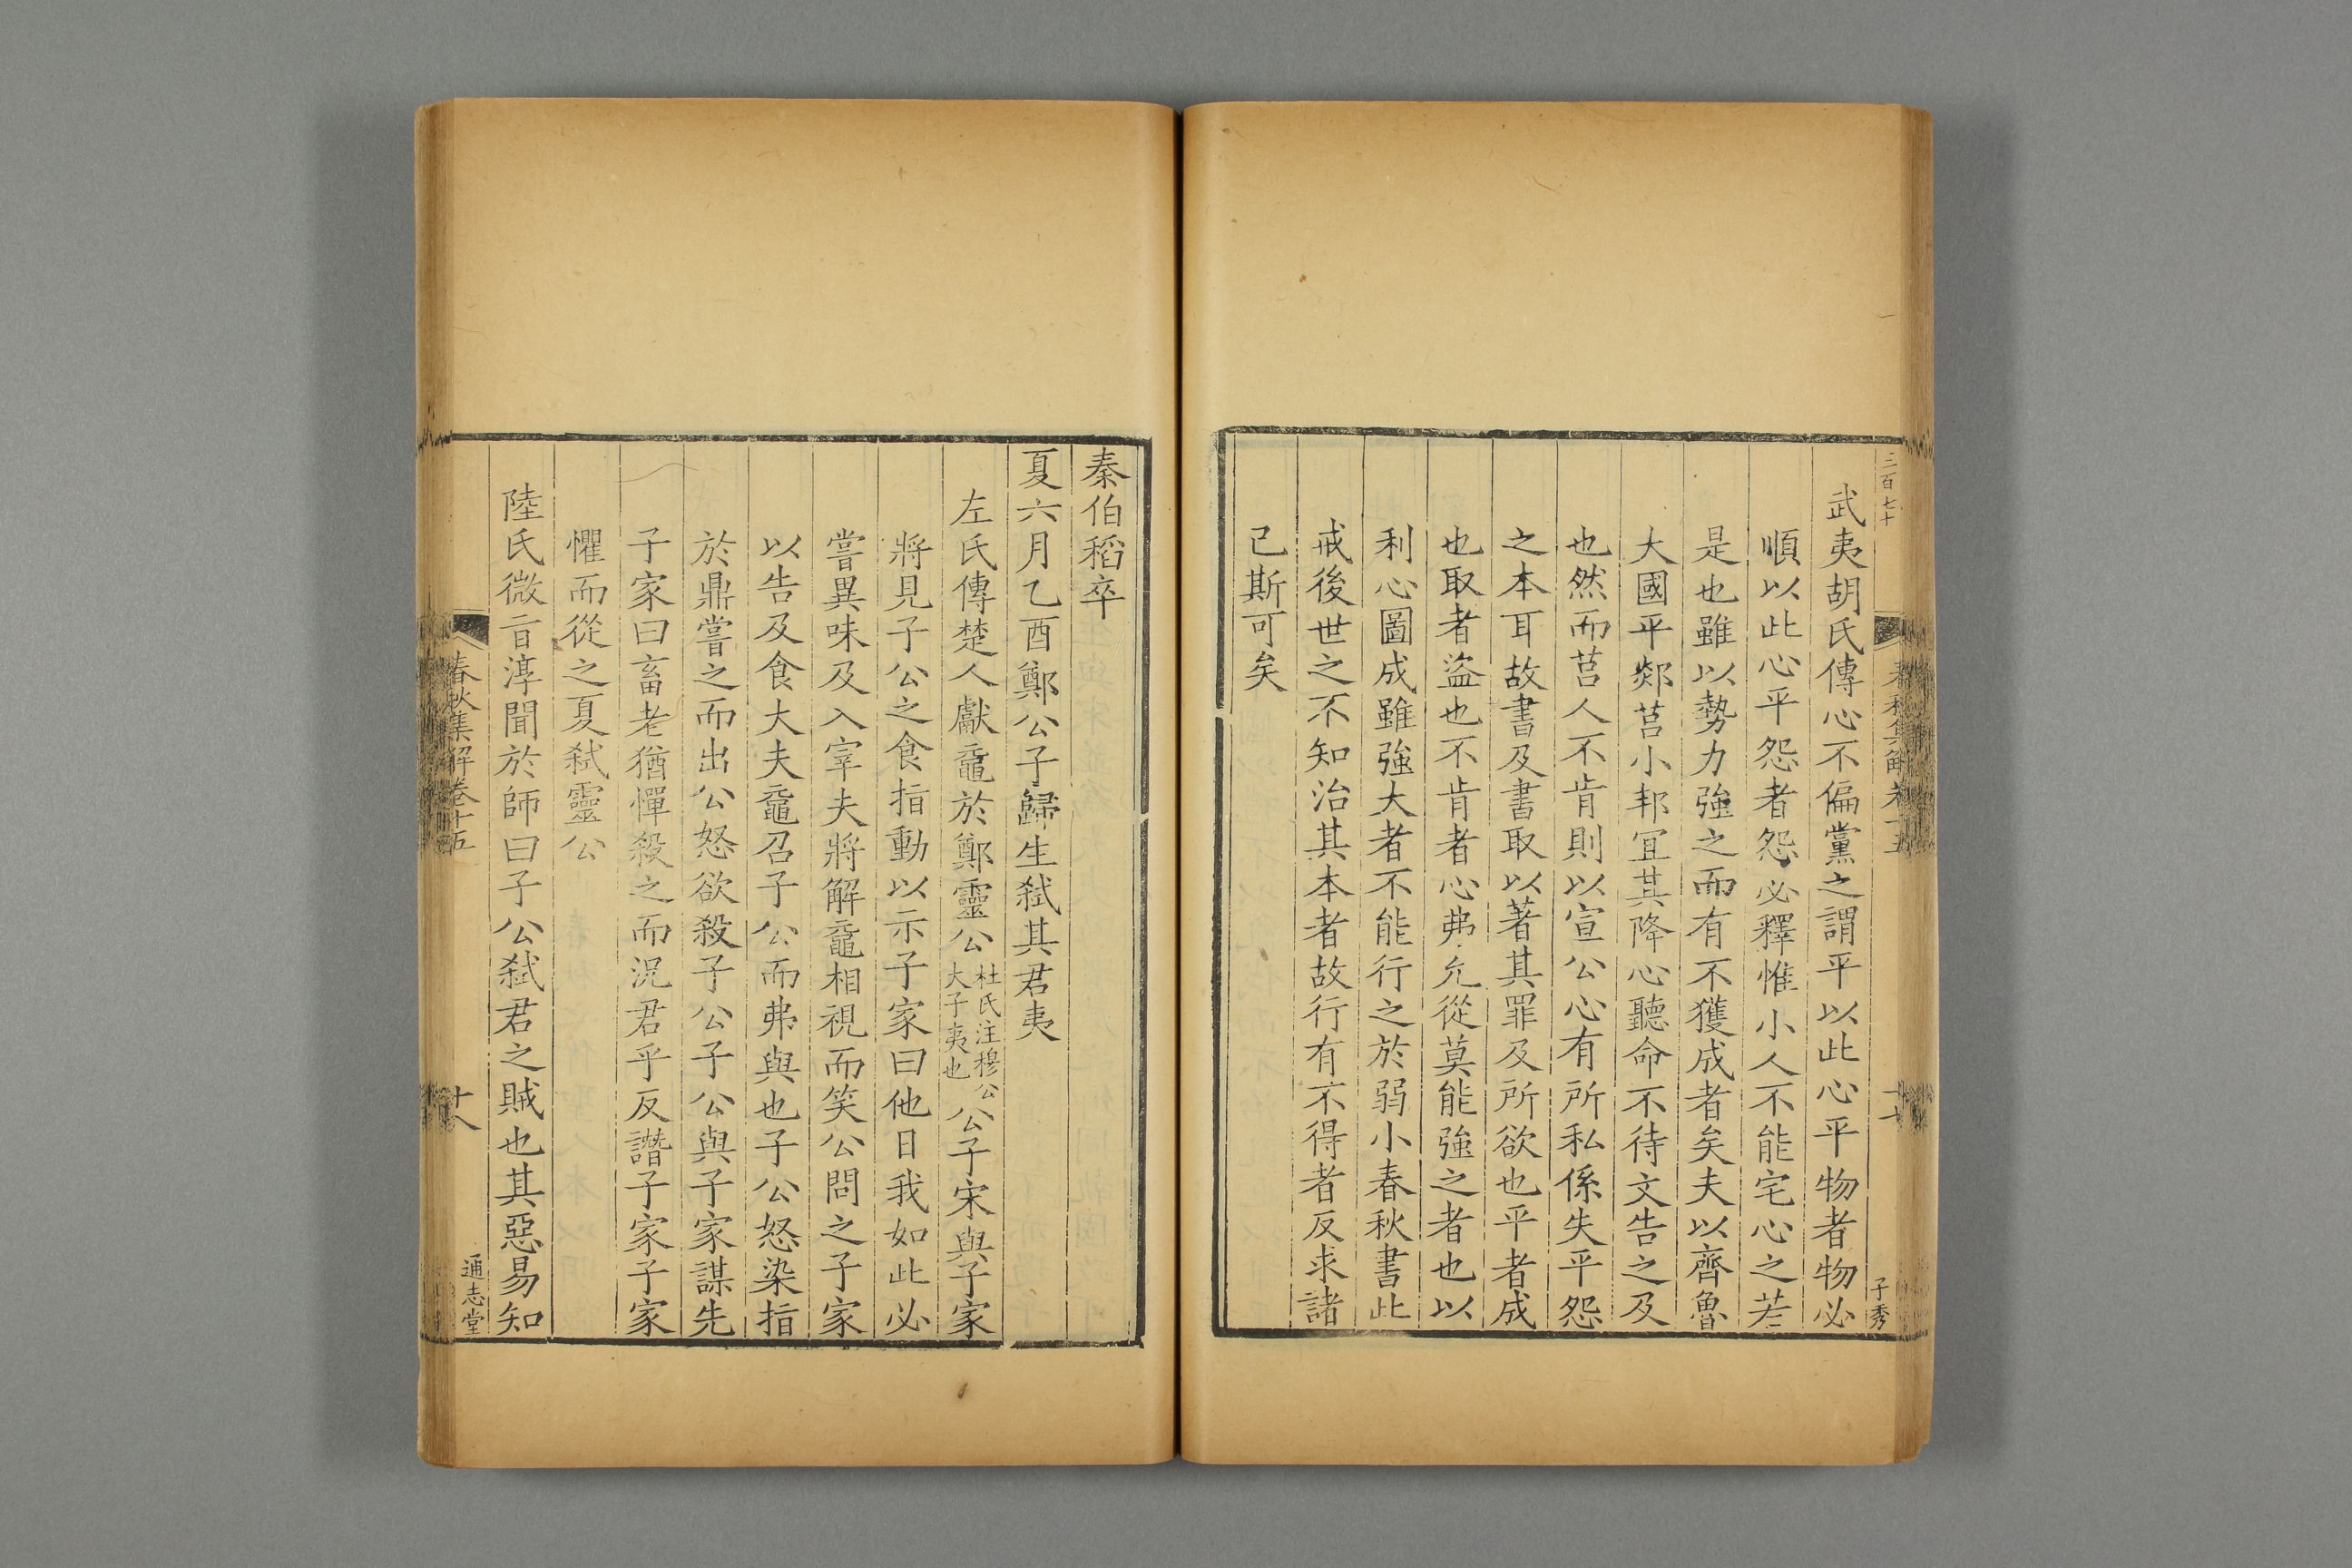 三百七十
春秋集解卷十五
十七
子秀
武夷胡氏傳心不偏黨之謂平以此心平物者物必
順以此心平怨者怨必釋惟小人不能宅心之若
是也雖以勢力強之而有不獲成者矣夫以齊魯
大國平郯莒小邦宜其降心聽命不待文告之及
也然而莒人不肯則以宣公心有所私係失平怨
之本耳故書及書取以著其罪及所欲也平者成
也取者盜也不肯者心弗允從莫能強之者也以
利心圖成雖強大者不能行之於弱小春秋書此
戒後世之不知治其本者故行有不得者反求諸
己斯可矣
秦伯稻卒
夏六月乙酉鄭公子歸生弒其君夷
左氏傳楚人獻黿於鄭靈公杜氏注穆公大子夷也公子宋與子家
將見子公之食指動以示子家曰他日我如此必
嘗異味及入宰夫將解黿相視而笑公問之子家
以告及食大夫黿召子公而弗與也子公怒染指
於鼎嘗之而出公怒欲殺子公子公與子家謀先
子家曰畜老猶憚殺之而況君乎反譖子家子家
懼而從之夏弒靈公
陸氏微旨淳聞於師曰子公弒君之賊也其惡易知
春秋集解卷十五
十八
通志堂